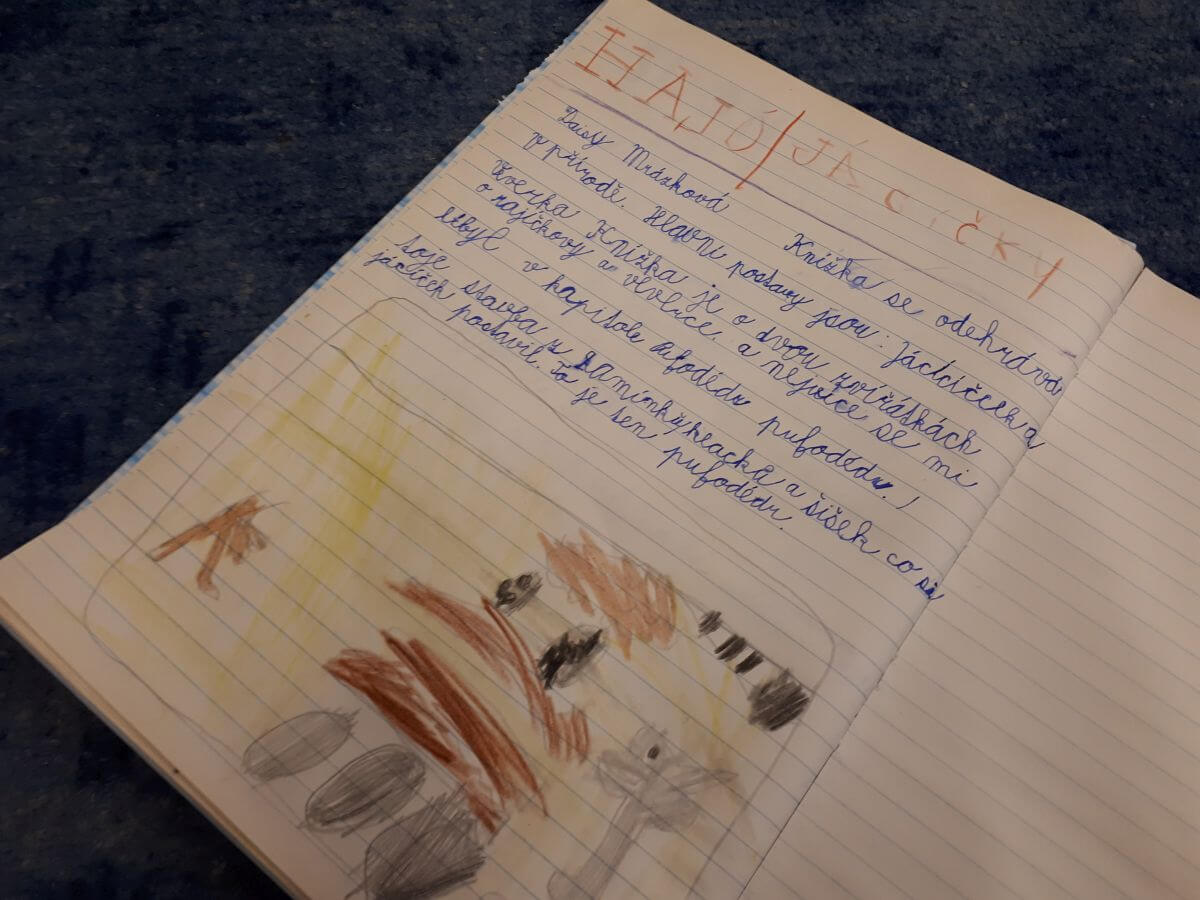 HAJÓ/JÁCÍČKY
Daisy Mrázková Knížka se odehrává
v přírodě. Hlavní postavy jsou: Jácíčelka
Veverka Knížka je o dvou zvířátkách
o zajíčkovy a vevrce. a nejvíce se mi
líbyl v kapitole pufodédu pufodédu.
toje stavba z kamínků klacků a šišek co si
jácíček postavil. To je sen pufodédu.